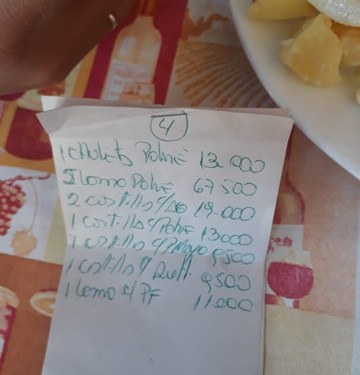 4
1 chuleta Pobre 13.000
5 lomo Pobre 67500
2 costillo 19.000
1 costillo c/Pobre 13000
1 costillo c/P Mayo 9500
1 costillo 9.500
1 lomo c/ PF 11.000